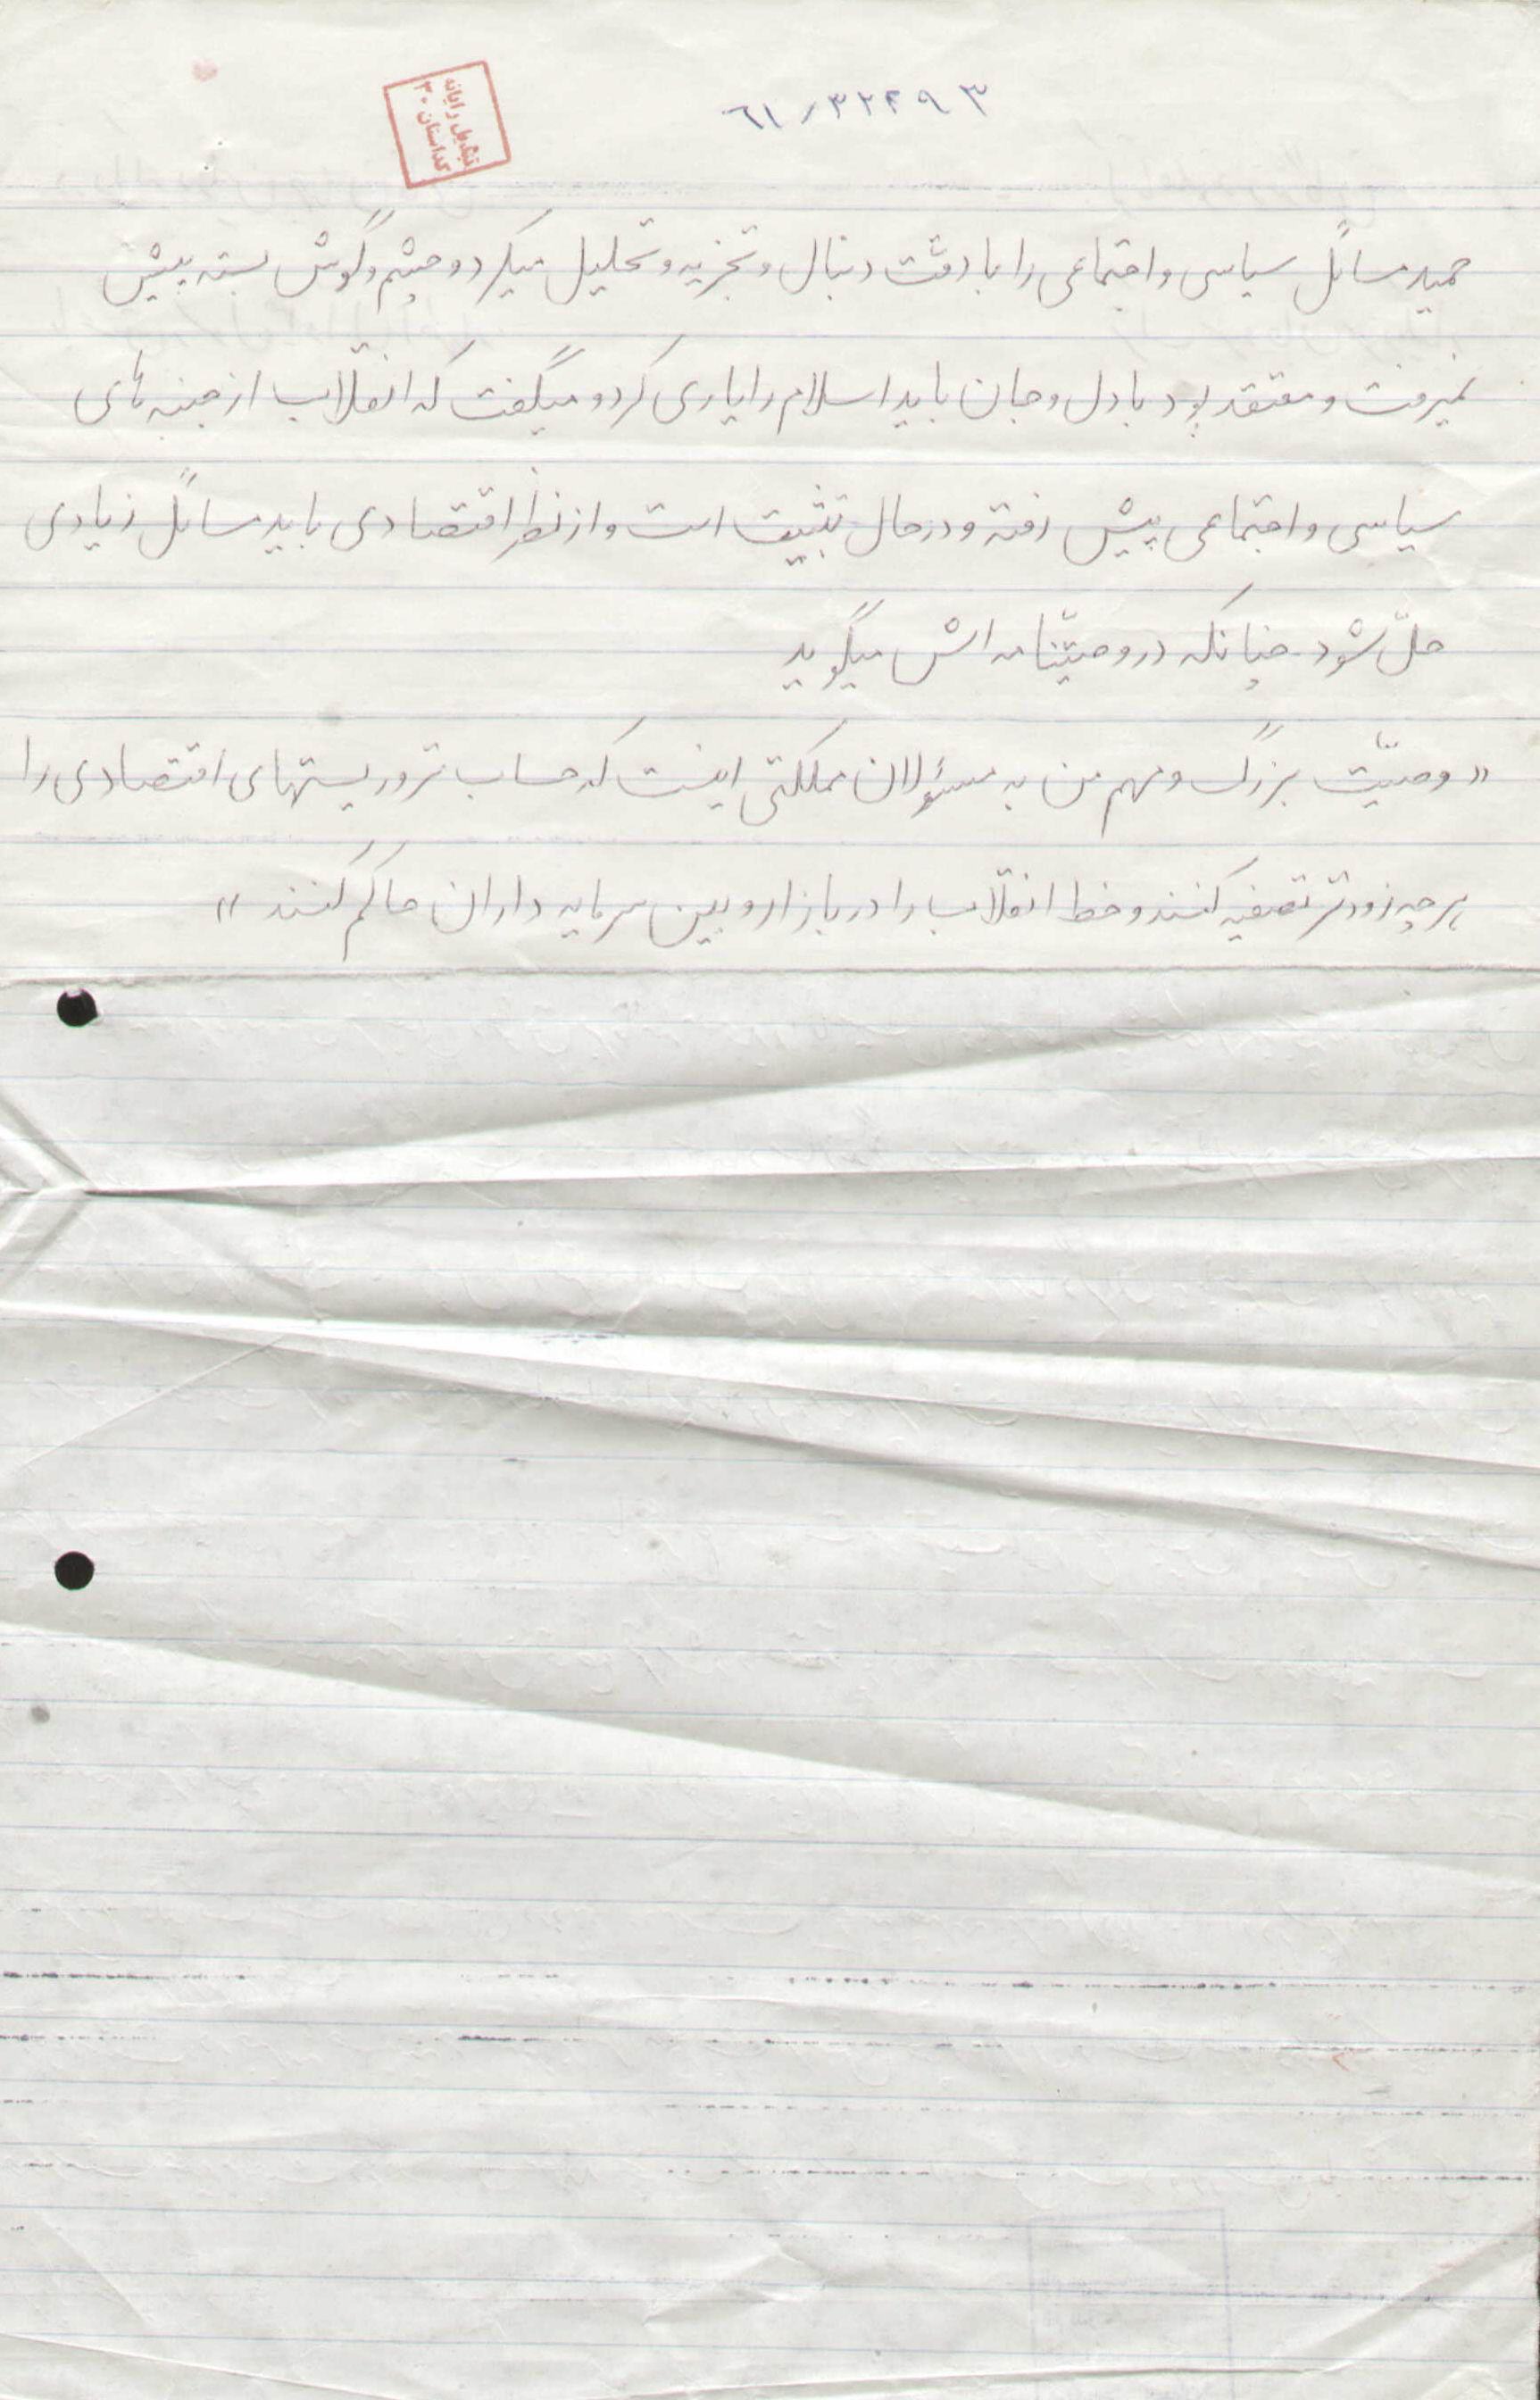 ۶۱/۳۲۴۹۳
تبدیل رایانه
کداستان ۳۰
حمید مسائل سیاسی و اجتماعی را با دقت دنبال و تجزیه و تحلیل میکرد و چشم و گوش بسته پیش
نمیرفت و معتقد بود با دل و جان باید اسلام را یاری کرد و میگفت که انقلاب از جنبه های
سیاسی و اجتماعی پیش رفته و در حال تثبیت است و از نظر اقتصادی باید مسائل زیادی
حلّ شود. چنانکه در وصیّتنامه اش میگوید
« وصیّت بزرگ و مهم من به مسئولان مملکتی اینست که حساب تروریستهای اقتصادی را
هر چه زودتر تصفیه کنند و خط انقلاب را در بازار و بین سرمایه داران حاکم کنند »